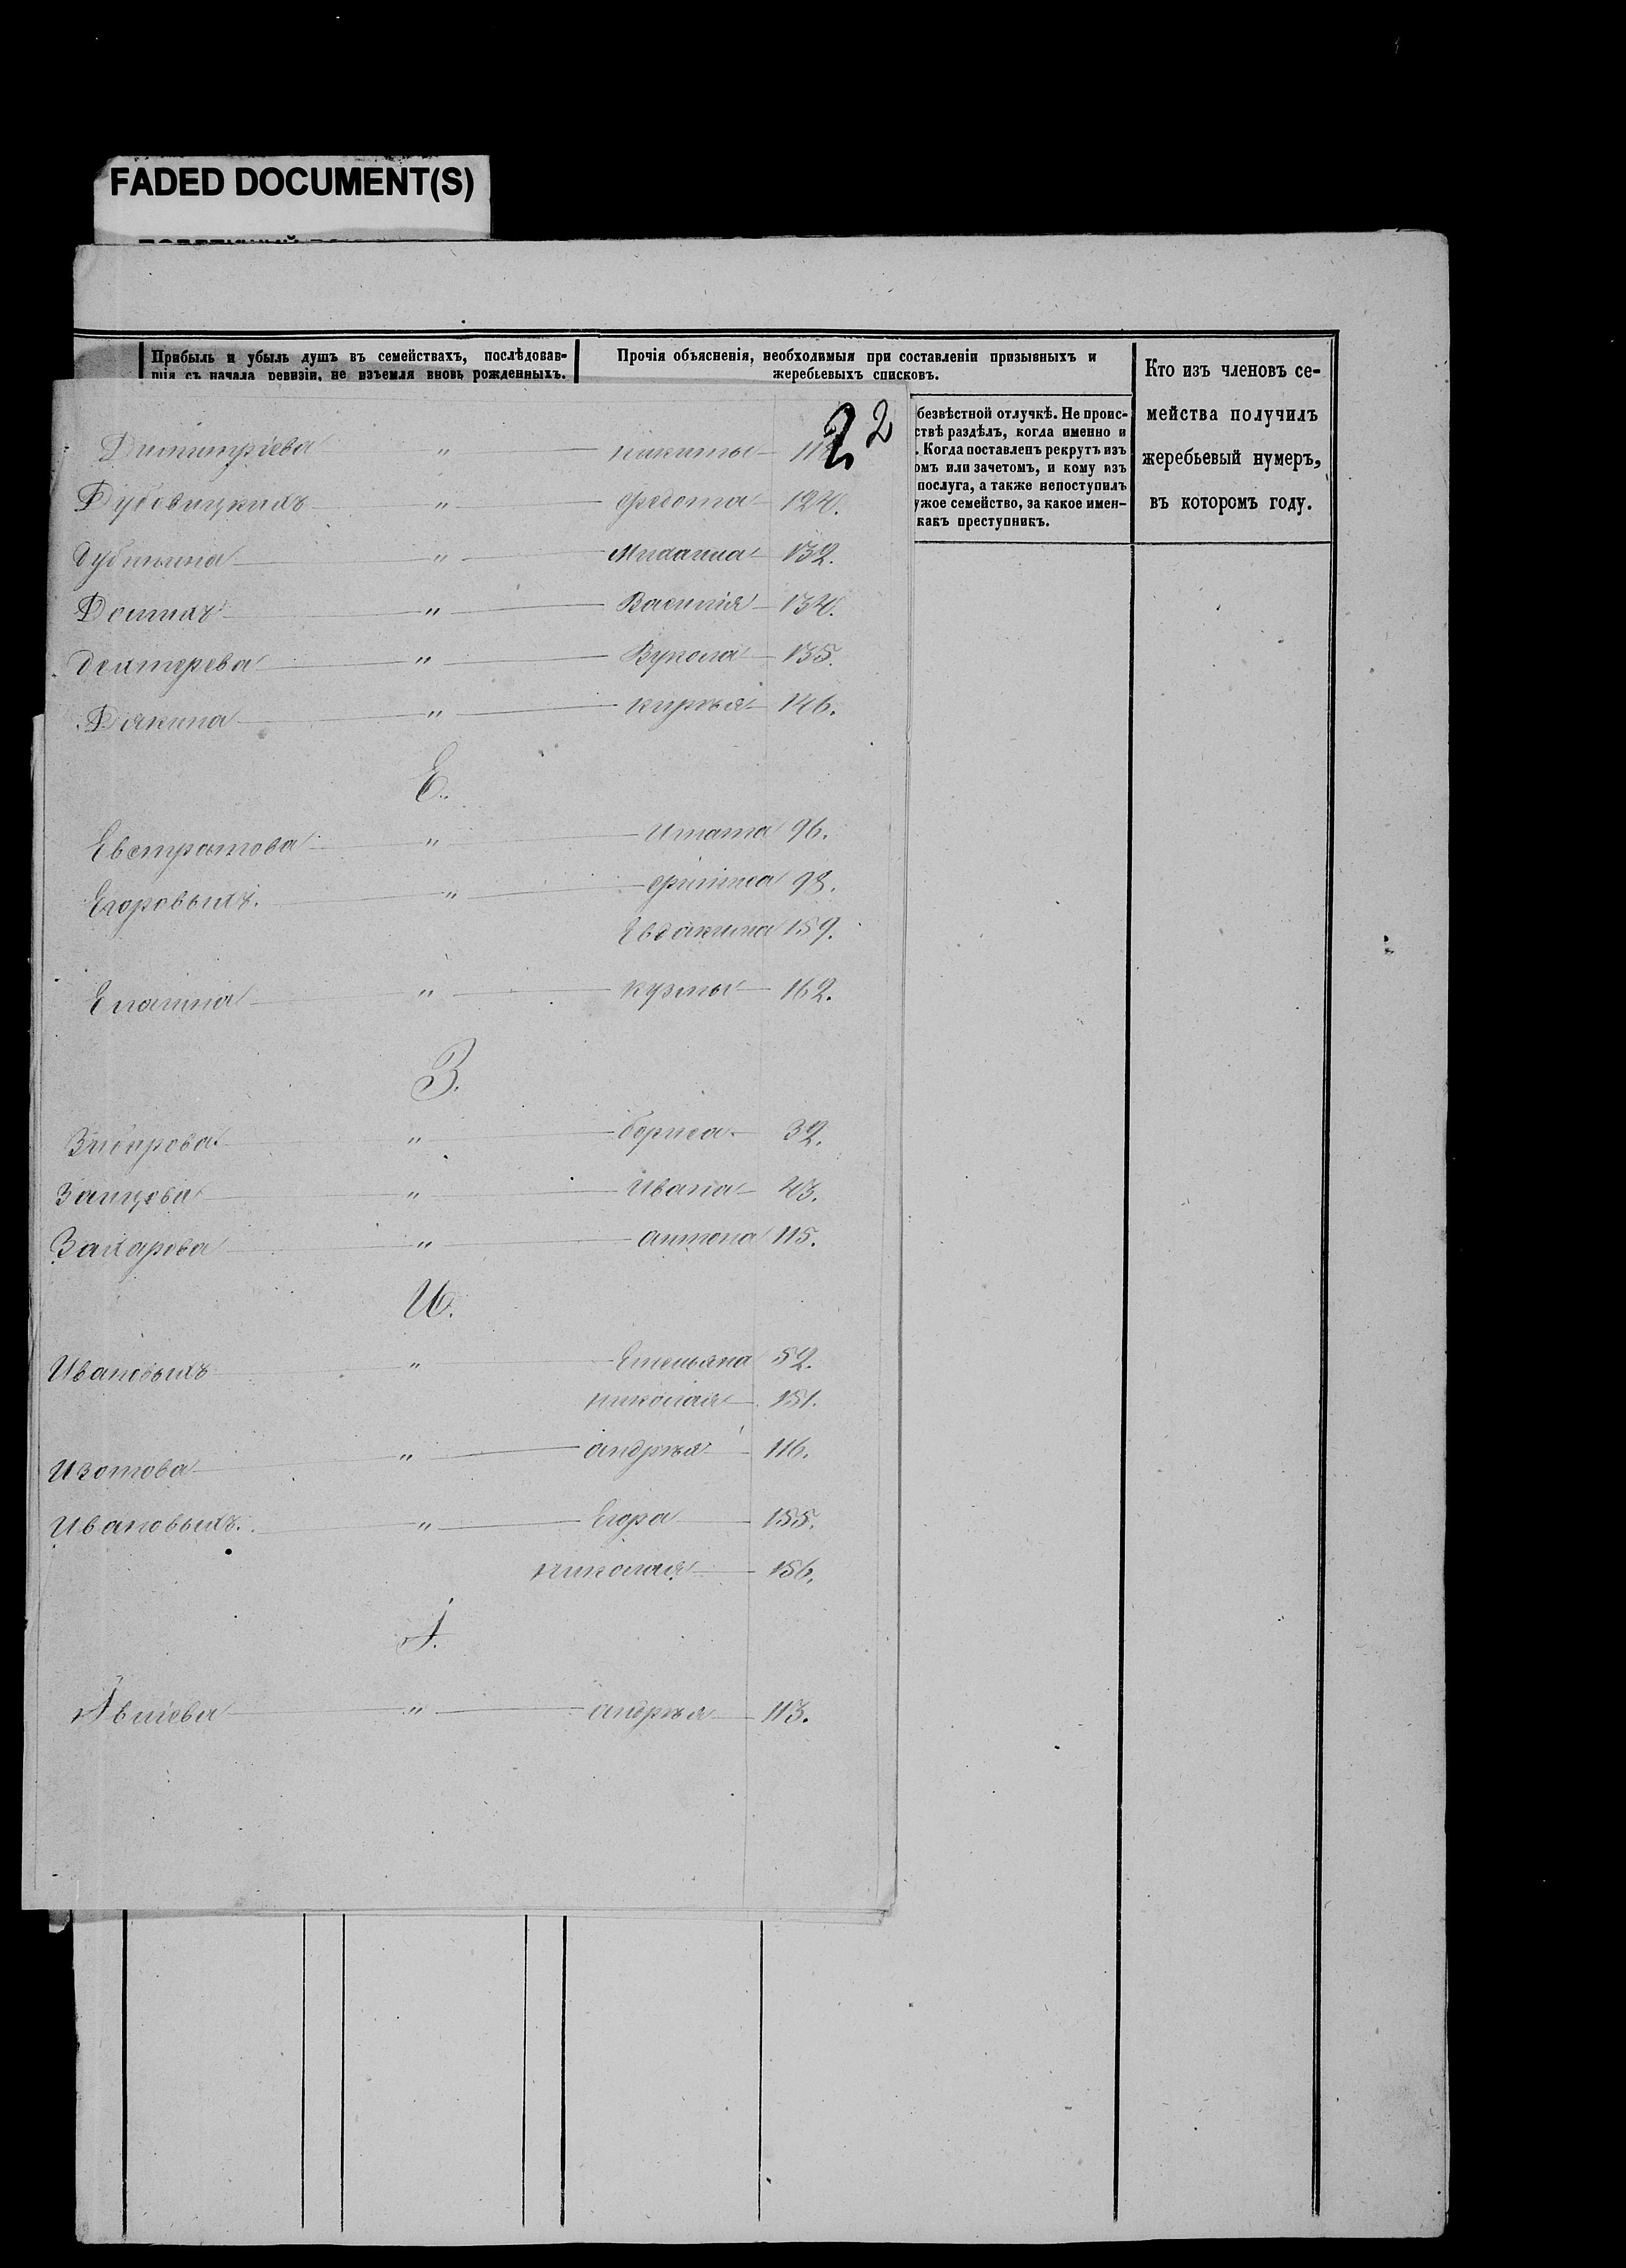 FADED DOCUMENT(S)
Прибыль и убыль душъ въ семействахъ, послѣдовав-
шія съ начала ревизіи, не изъемля вновь рожденныхъ.
Прочія объясненія, необходимыя при составленіи призывныхъ и
жеребьевыхъ списковъ.
безвѣстной отлучкѣ. Не проис-
ствѣ раздѣлъ, когда именно и
. Когда поставленъ рекрутъ изъ
омъ или зачетомъ, и кому изъ
послуга, а также непоступилъ
ужое семейство, за какое имен-
какъ преступникъ.
Кто изъ членовъ се-
мейства получилъ
жеребьевый нумеръ,
въ которомъ году.
22
Димитріева " никиты
Дубовицкихъ " федота 124.
Губинина " 132.
" Василія 134.
дехтерева " Вукола 135.
Дякина " кирѣя 146.
Е.
Евстратова " Ипата 96.
Егоровыхъ. " 98.
Евдакима 159.
Елагина " кузмы 162.
З.
" бориса 32.
Зайцова " Ивана 43.
Захарова " антона 115.
И.
Ивановыхъ " Емельяна 52.
николая 151.
Изотова " андрѣя 116.
Ивановыхъ. " Егора 155.
николая 156.
І.
Івліева " андрѣя 113.